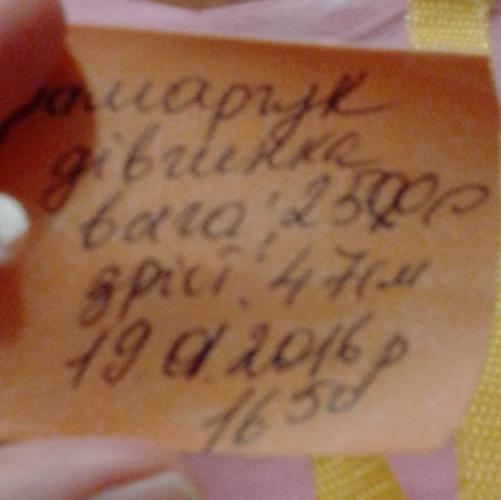 дівчинка
вага: 2500 г
зріст: 47см
19 01 2016 р
16 50